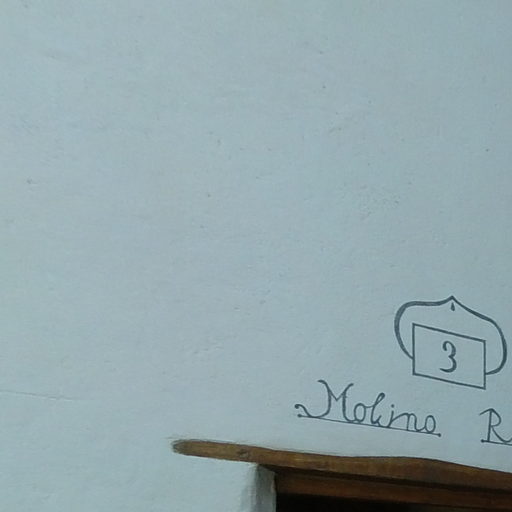 3
Molino R